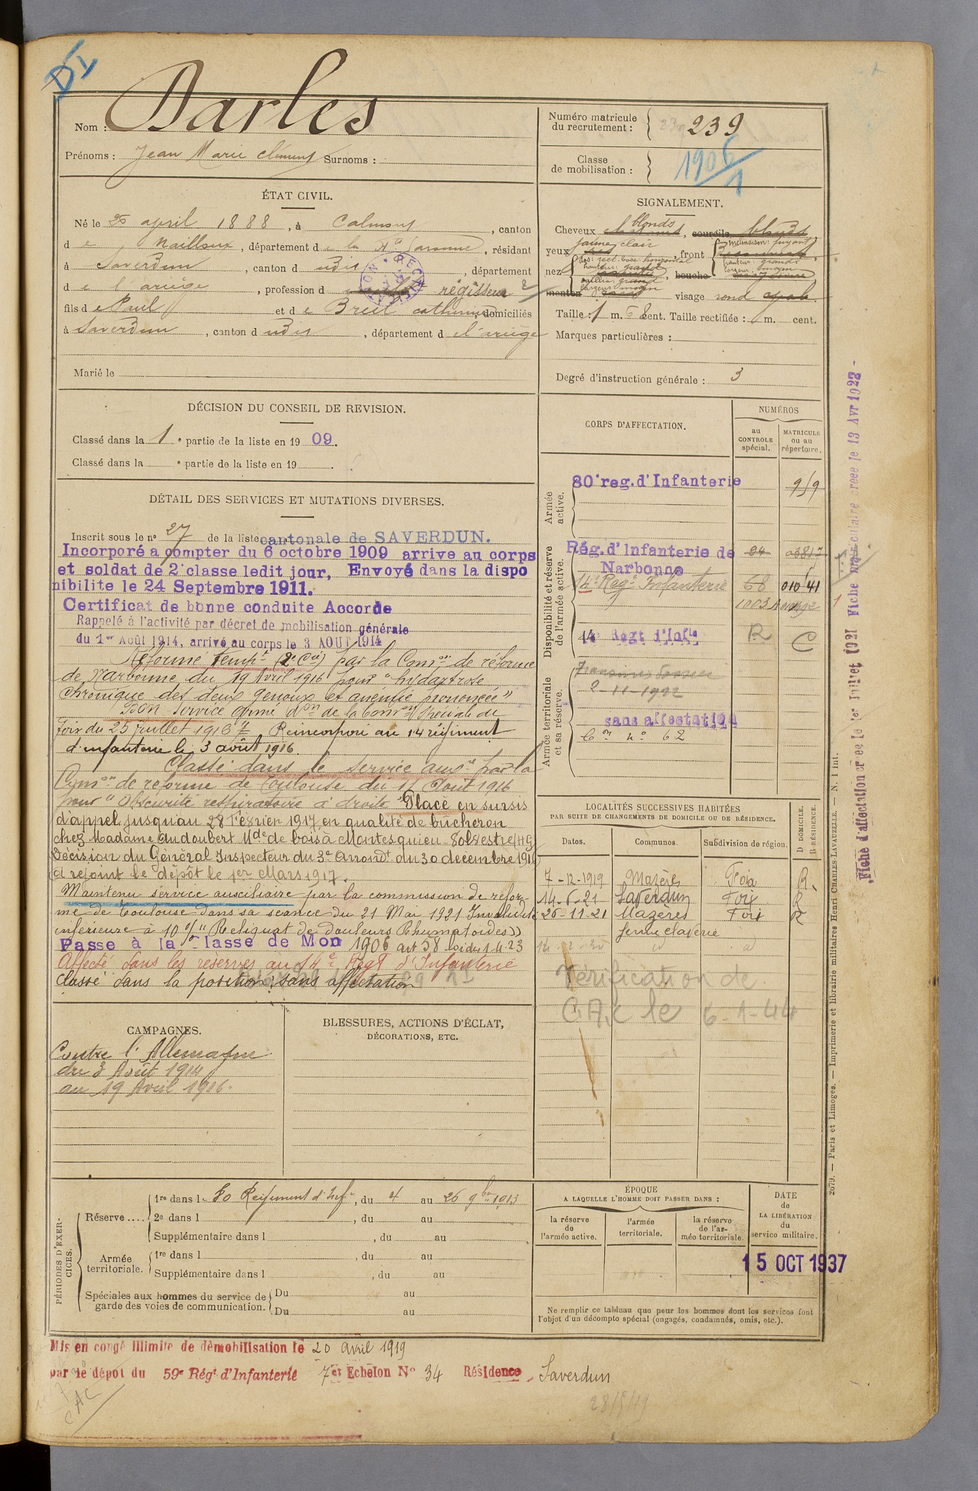 DI
Nom : Darles
Prénoms : Jean Marie Clément Surnoms :
Numéro matricule du recrutement : 239
Classe de mobilisation : 1906/1
ÉTAT CIVIL.
Né le 20 april 1888, à Calmont, canton
de Nailloux, département de la Hte Garonne, résidant
à Saverdun, canton d udit, département
de l'ariège, profession d régisseur
fils de Paul et de Breil domiciliés
à Saverdun, canton d udit, département de l'ariège
Marié le
SIGNALEMENT.
Cheveux blonds, sourcils blonds
yeux jaune clair, front
nez, bouche
menton visage rond ovale
Taille : 1 m. 68 cent. Taille rectifiée : m. cent.
Marques particulières :
Degré d'instruction générale : 3
DÉCISION DU CONSEIL DE REVISION.
Classé dans la 1e partie de la liste en 1909.
Classé dans la e partie de la liste en 19 .
DÉTAIL DES SERVICES ET MUTATIONS DIVERSES.
Inscrit sous le no 27 de la liste cantonale de SAVERDUN.
Incorporé a compter du 6 octobre 1909 arrive au corps
et soldat de 2e classe ledit jour, Envoyé dans la dispo
nibilite le 24 Septembre 1911.
Certificat de bonne conduite Accorde
Rappelé à l'activité par décret de mobilisation générale
du 1er Août 1914, arrivé au corps le 3 AOUT 1914
Réformé Tempre (2e Cie) par la Comon de réforme
de Narbonne du 19 Avril 1916 pour "hydartrose
chronique des deux genoux et anémie prononcée"
Bon service armé Don de la Comon Spéciale de
Foix du 25 juillet 1916 Reincorporé au 14 régiment
d'infanterie le 3 août 1916.
Classé dans le service auxre par la
Comon de réforme de Toulouse du 17 Août 1916
pour "Obscurité respiratoire à droite" Placé en sursis
d'appel jusqu'au 28 Février 1917 en qualité de bûcheron
chez Madame Audoubert Mde de bois à Montesquieu-Volvestre (HG)
Décision du Général Inspecteur du 3e Arrondt du 30 decembre 1916
A rejoint le dépôt le 1er Mars 1917.
Maintenu service auxiliaire par la commission de réfor-
me de Toulouse dans sa séance du 21 Mai 1921 Invalidité
inférieure à 10 % "Reliquat de Douleurs Rhumatoides"
Passe à la Classe de Mon 1906 art 58 loi du 1.4.23
Affecté dans les réserves au 14e Régt d'Infanterie
Classé dans la position "sans affectation
CORPS D'AFFECTATION.
NUMÉROS
au CONTROLE spécial.
MATRICULE ou au répertoire.
Armée active.
80e reg. d'Infanterie 9/9
Disponibilité et réserve de l'armée active.
Rég. d'Infanterie de Narbonne 24
14e Regt Infanterie 68 010741
14 Regt d'Infie R C
Armée territoriale et sa réserve.
sans affectation
LOCALITÉS SUCCESSIVES HABITÉES
PAR SUITE DE CHANGEMENTS DE DOMICILE OU DE RÉSIDENCE.
Dates. Communes. Subdivision de région. D. DOMICILE. R. RÉSIDENCE.
7-12-1919 Mazères Foix R.
14.6.21 Saverdun Foix R
26-11-21 Mazères Foix R
Vérification de
CAC le 6-1-44
CAMPAGNES.
Contre l'Allemagne
du 3 Août 1914
au 19 Avril 1916.
BLESSURES, ACTIONS D'ÉCLAT,
DÉCORATIONS, ETC.
PÉRIODES D'EXERCICES.
Réserve....
1re dans l 80 Régiment d'Inf, du 4 au 26 9bre 1913
2e dans l , du au
Supplémentaire dans l , du au
Armée territoriale.
1re dans l , du au
Supplémentaire dans l , du au
Spéciales aux hommes du service de garde des voies de communication.
Du au
Du au
ÉPOQUE
A LAQUELLE L'HOMME DOIT PASSER DANS :
la réserve de l'armée active.
l'armée territoriale.
la réserve de l'armée territoriale
DATE de LA LIBÉRATION du service militaire.
15 OCT 1937
Ne remplir ce tableau que pour les hommes dont les services font
l'objet d'un décompte spécial (engagés, condamnés, omis, etc.).
Mis en congé illimité de démobilisation le 20 avril 1919
par le dépot du 59e Régt d'Infanterie 7er Echelon No 34 Résidence Saverdun
CAC
Fiche d'affectation créée le 1er Juillet 1921 Fiche créée le 19 Avr 1922
2679. — Paris et Limoges. — Imprimerie et librairie militaires Henri CHARLES-LAVAUZELLE. — N. 1 int.